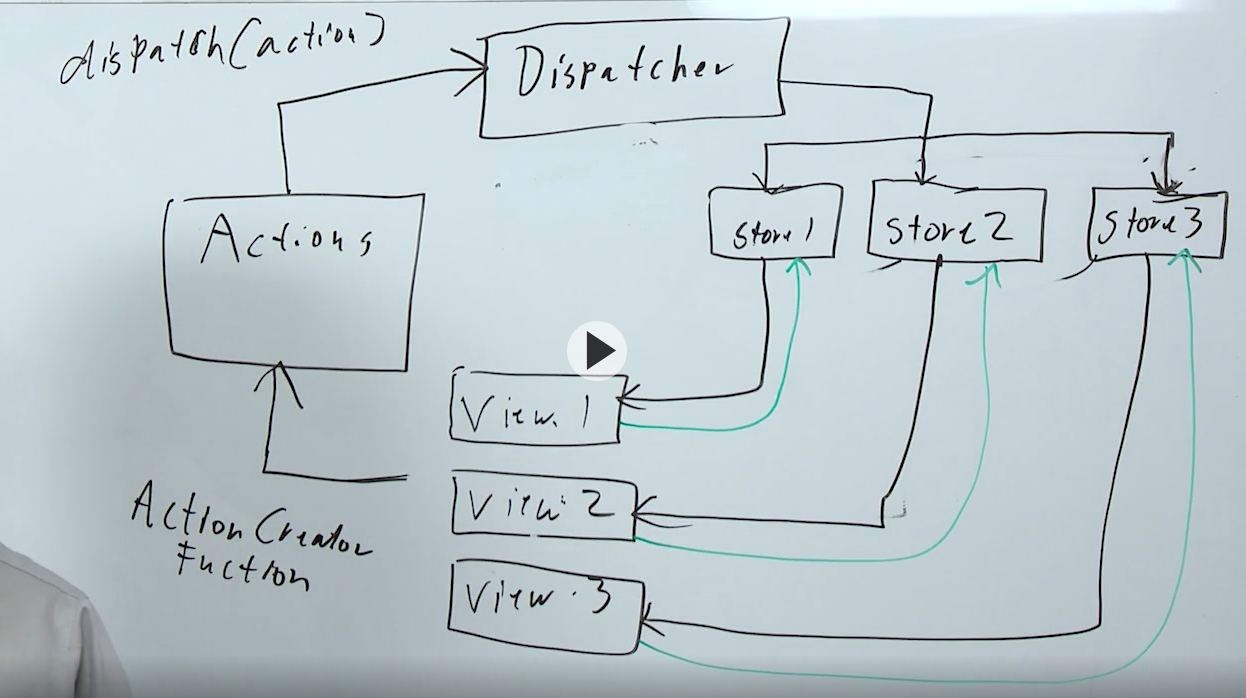 dispatch(action)
Dispatcher
Actions
Store 1
Store 2
Store 3
View 1
View 2
View 3
Action Creator
Fuction